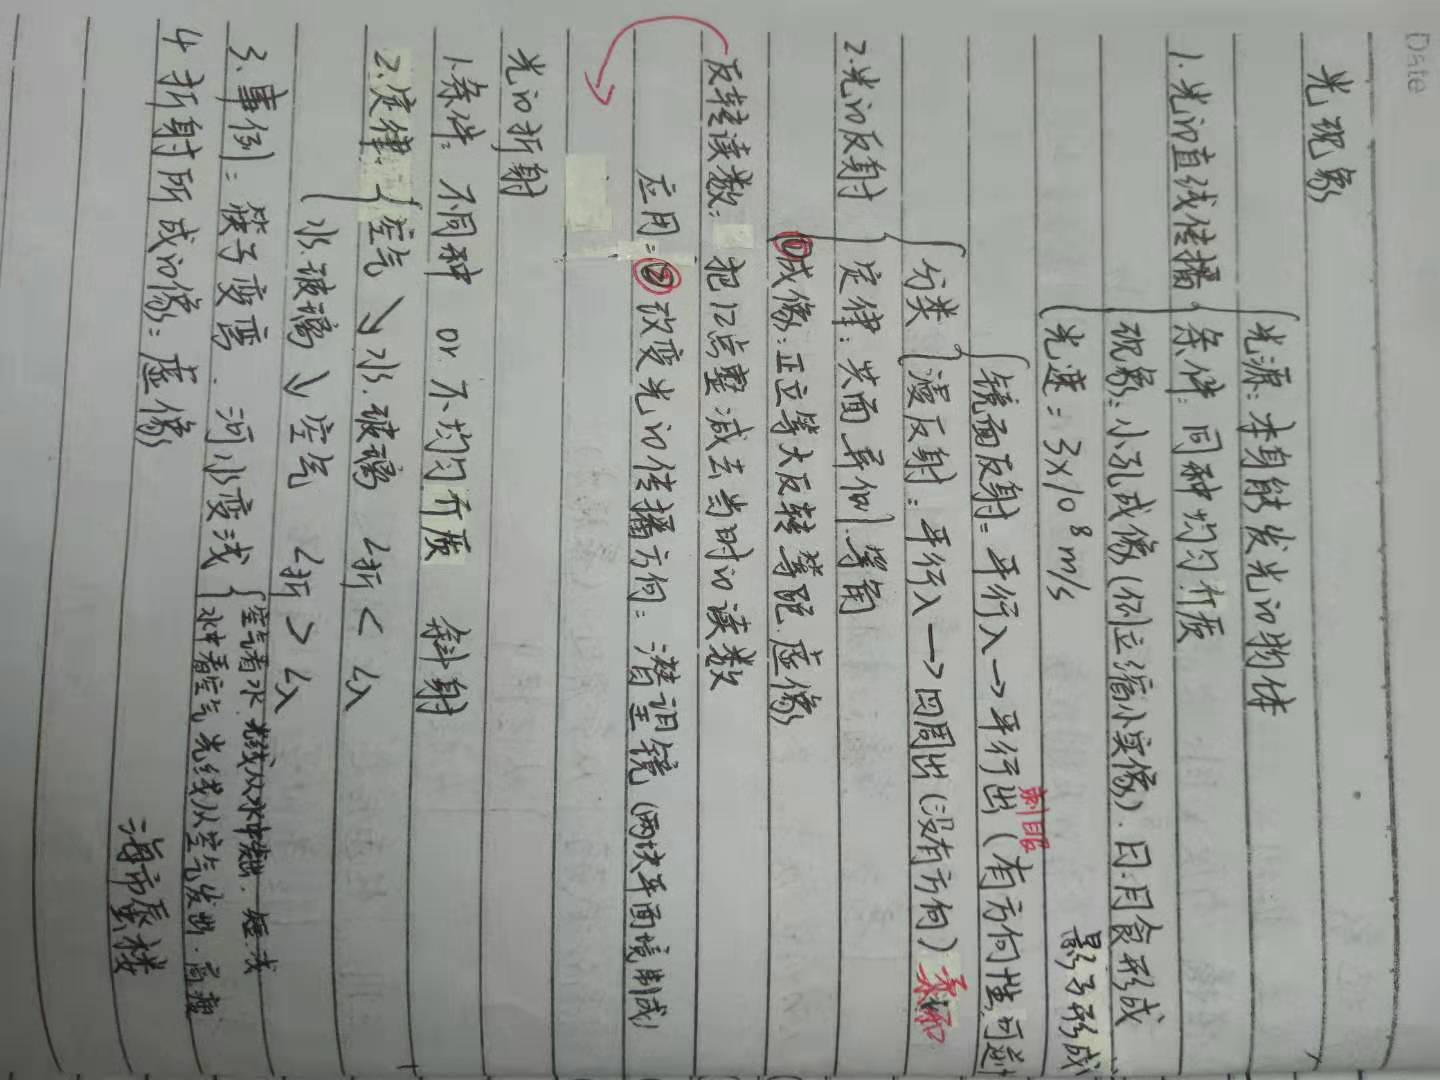 Date
光现象
光源：本身能发光的物体
1.光的直线传播
条件：同种均匀介质
现象：小孔成像(倒立缩小实像)．日.月食形成
影子形成
光速：3×10⁸m/s
刺眼
镜面反射：平行入→平行出(有方向性,可逆
分类
漫反射：平行入→四周出(没有方向)柔和
2.光的反射
定律：共面异侧.等角
①成像：正立等大反转等距.虚像
反转读数：把12点整减去当时的读数
应用：②改变光的传播方向：潜望镜(两块平面境制成)
光的折射
1.条件：不同种 or 不均匀介质 斜射
2.定律：空气↘水.玻璃 ∠折<∠入
水.玻璃↘空气 ∠折>∠入
3.事例：筷子变弯．河水变浅
空气看水.光线从水中发出．矮.浅
水中看空气光线从空气发出．高.
4 折射所成的像：虚像
海市蜃楼